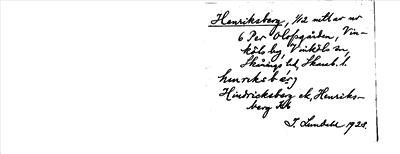 Henriksberg, 1/2 mtl av nr
6 Per Olofsgården, Vin-
köls by, Vinköls sn,
Skånings hd, Skarab. l.
henriksbärj
Hindricksberg ek, Henriks-
berg Kb
I. Lundahl 1928.